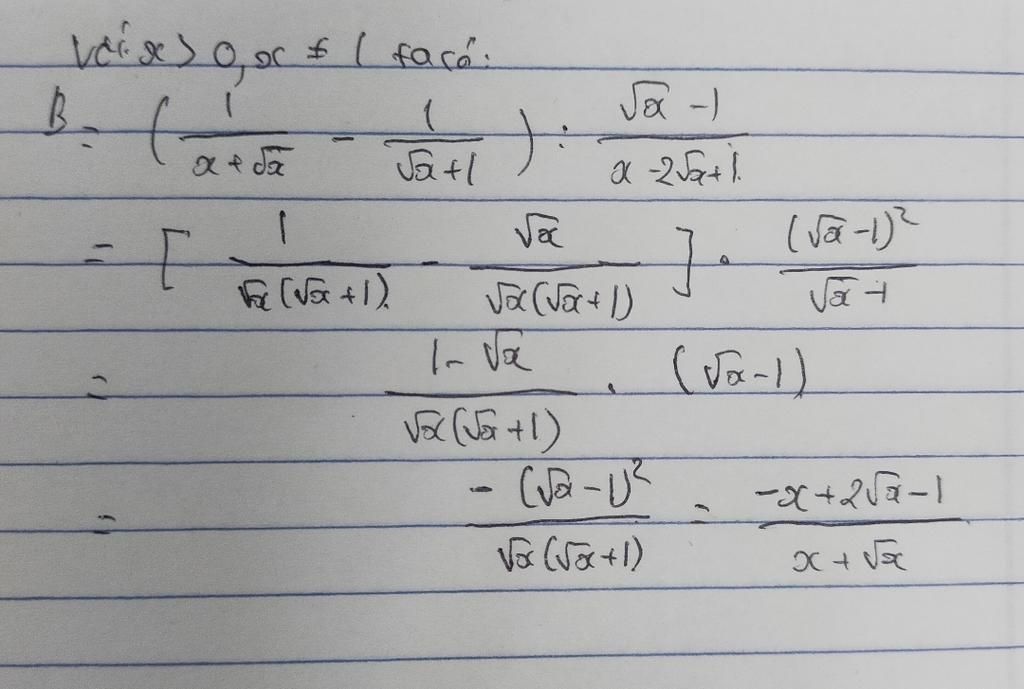 Với x > 0, x ≠ 1 ta có:
B = ( 1/(x + √x) - 1/(√x + 1) ) : (√x - 1)/(x - 2√x + 1)
= [ 1/(√x(√x + 1)) - √x/(√x(√x + 1)) ] . (√x - 1)²/(√x - 1)
= (1 - √x)/(√x(√x + 1)) . (√x - 1)
= -(√x - 1)²/(√x(√x + 1)) = (-x + 2√x - 1)/(x + √x)